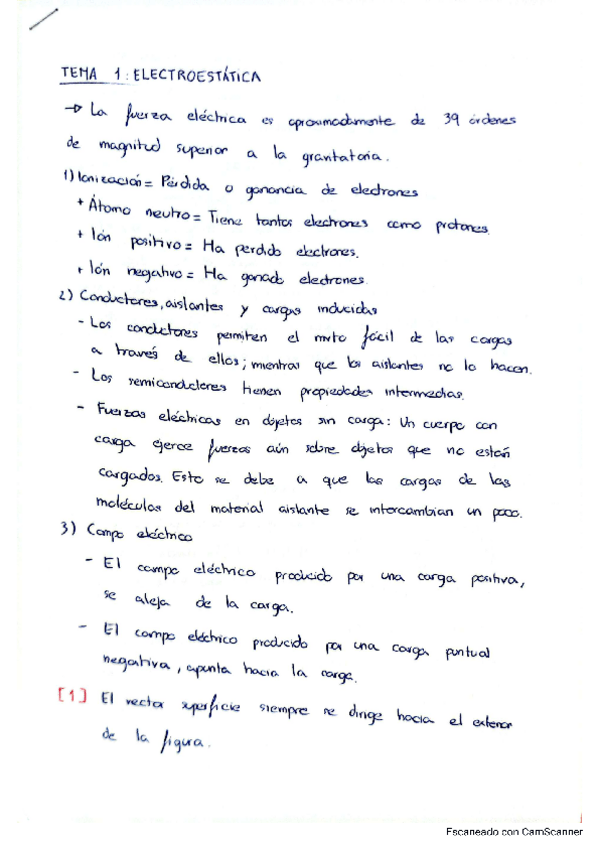 TEMA 1: ELECTROESTÁTICA
→ La fuerza eléctrica es aproximadamente de 39 órdenes
de magnitud superior a la gravitatoria.
1) Ionización = Pérdida o ganancia de electrones
+ Átomo neutro = Tiene tantos electrones como protones.
+ Ión positivo = Ha perdido electrones.
+ Ión negativo = Ha ganado electrones.
2) Conductores, aislantes y cargas inducidas
- Los conductores permiten el mvto fácil de las cargas
a través de ellos; mientras que los aislantes no lo hacen.
- Los semiconductores tienen propiedades intermedias.
- Fuerzas eléctricas en objetos sin carga: Un cuerpo con
carga ejerce fuerzas aún sobre objetos que no están
cargados. Esto se debe a que las cargas de las
moléculas del material aislante se intercambian un poco.
3) Campo eléctrico
- El campo eléctrico producido por una carga positiva,
se aleja de la carga.
- El campo eléctrico producido por una carga puntual
negativa, apunta hacia la carga.
[1] El vector superficie siempre se dirige hacia el exterior
de la figura.
Escaneado con CamScanner